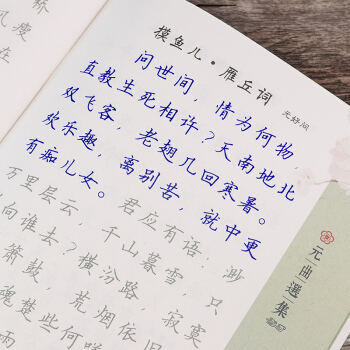 摸鱼儿·雁丘词
元好问
问世间,情为何物,
直教生死相许?天南地北
双飞客,老翅几回寒暑。
欢乐趣,离别苦,就中更
有痴儿女。
君应有语:渺
万里层云,千山暮雪,只
向谁去?横汾路,寂寞
箫鼓,荒烟依旧
魂楚些何嗟
雨
风瘦
在
元曲選集